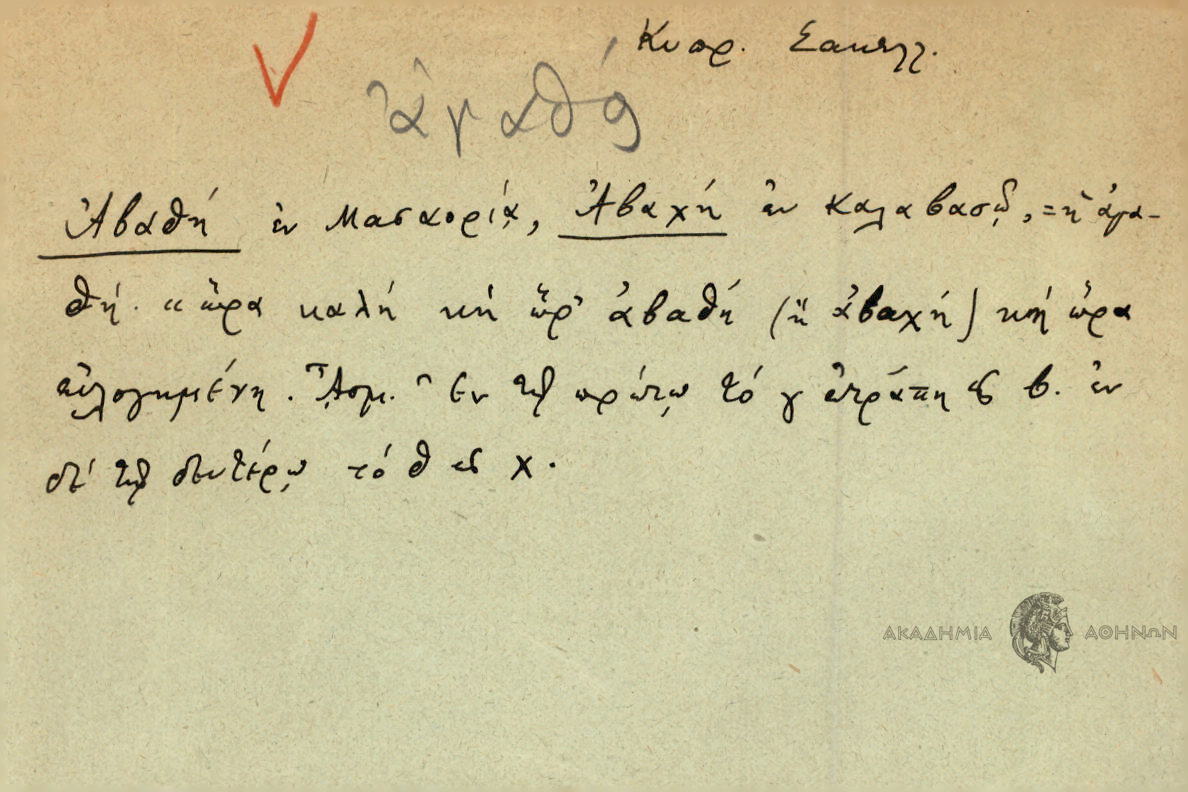 Κυπρ. Σακελλ.
ἀγαθός
Ἀβαθή ἐν Μασαορίᾳ, Ἀβαχή ἐν Καλαβασῷ, = ἡ ἀγα-
θή. "ὥρα καλή κή ὥρ' ἀβαθή (ἤ ἀβαχή) κή ὥρα
εὐλογημένη. ᾎσμ. " Ἐν τῷ πρώτῳ τό γ ἐτράπη εἰς β. ἐν
δέ τῷ δευτέρῳ τό θ εἰς χ.
ΑΚΑΔΗΜΙΑ ΑΘΗΝΩΝ